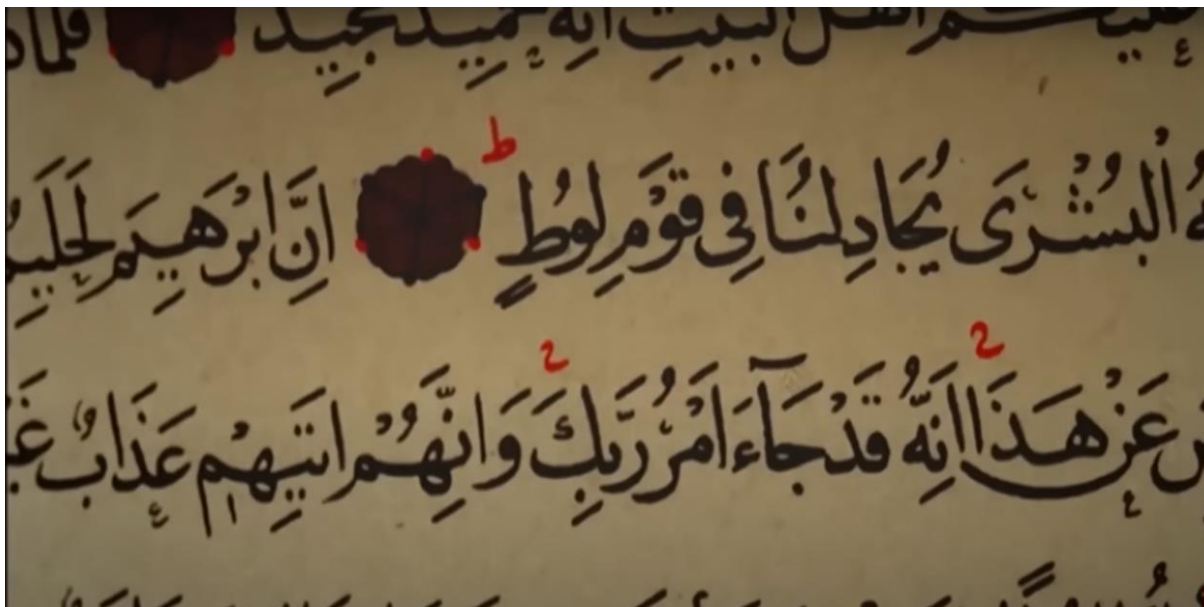 عليكم اهل البيت انه حميد مجيد فلما
البُشْرَى يُجَادِلُنَا فِي قَوْمِ لُوطٍ ط اِنَّ اِبْرهِيمَ
عَنْ هذَا اِنَّهُ قَدْ جَآءَ اَمْرُ رَبِّكَ وَاِنَّهُمْ اتِيهِمْ عَذَابٌ